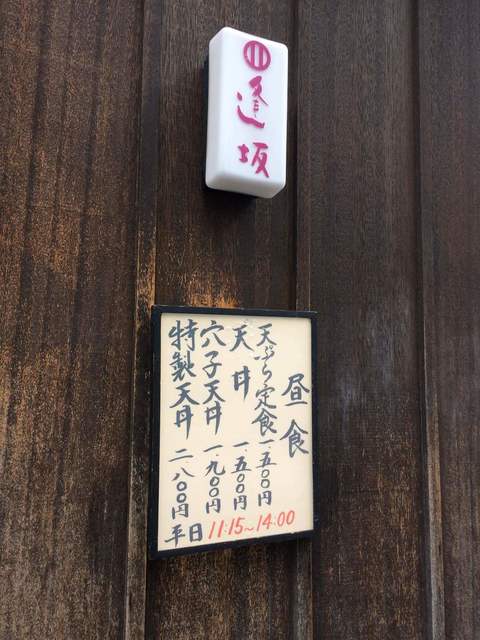 逢坂
昼食
天ぷら定食 一.五〇〇円
天丼 一.五〇〇円
穴子天丼 一.九〇〇円
特製天丼 二.八〇〇円
平日 11:15~14:00